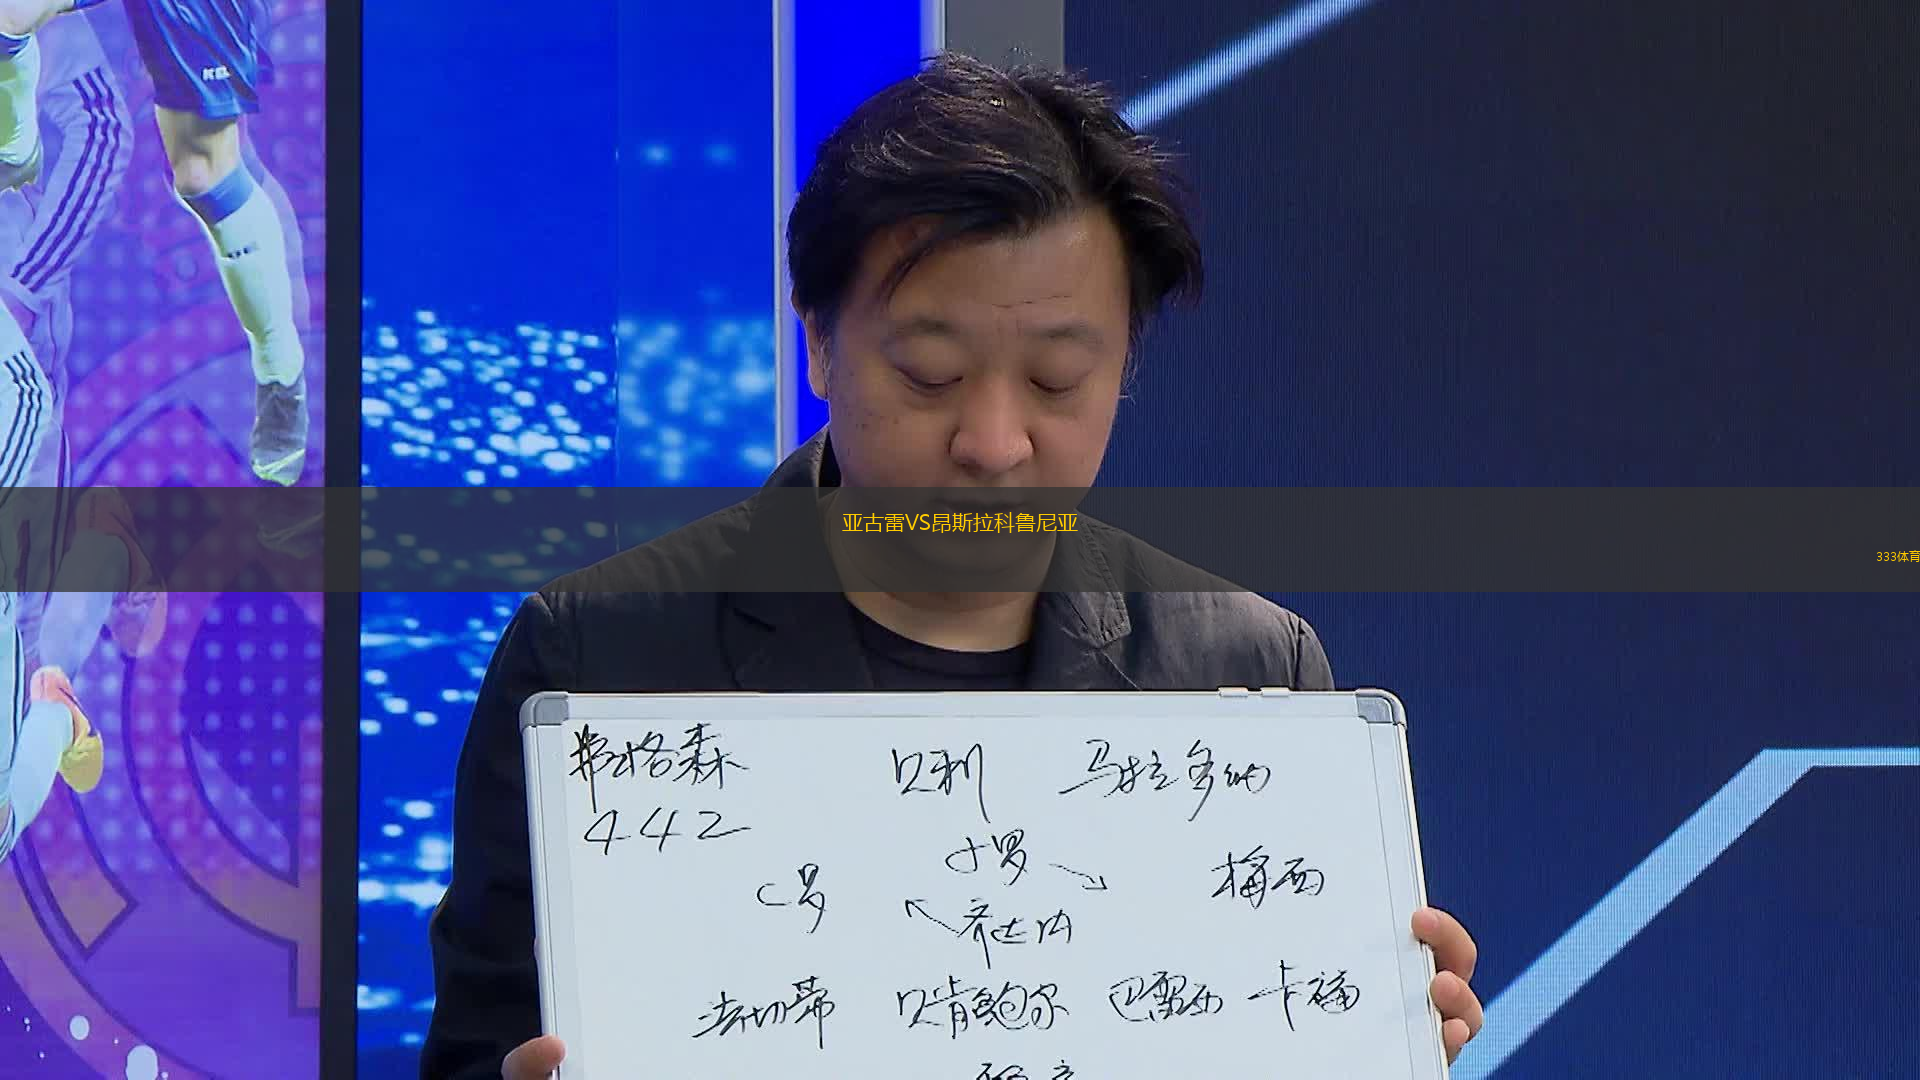 亚古雷VS昂斯拉科鲁尼亚
333体育
弗格森 贝利 马拉多纳
442
C罗 小罗 梅西
齐达内
法切蒂 贝肯鲍尔 巴雷西 卡福